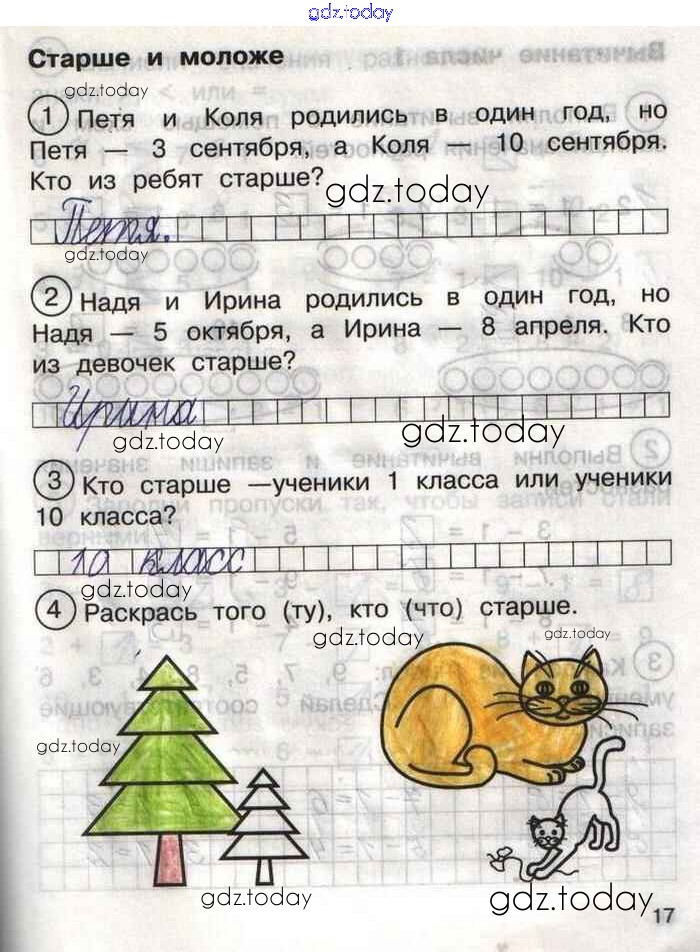 gdz.today
Старше и моложе
gdz.today
1 Петя и Коля родились в один год, но
Петя — 3 сентября, а Коля — 10 сентября.
Кто из ребят старше?
gdz.today
Петя.
gdz.today
2 Надя и Ирина родились в один год, но
Надя — 5 октября, а Ирина — 8 апреля. Кто
из девочек старше?
Ирина
gdz.today
gdz.today
3 Кто старше —ученики 1 класса или ученики
10 класса?
10 класс
gdz.today
4 Раскрась того (ту), кто (что) старше.
gdz.today
gdz.today
gdz.today
gdz.today
gdz.today
17